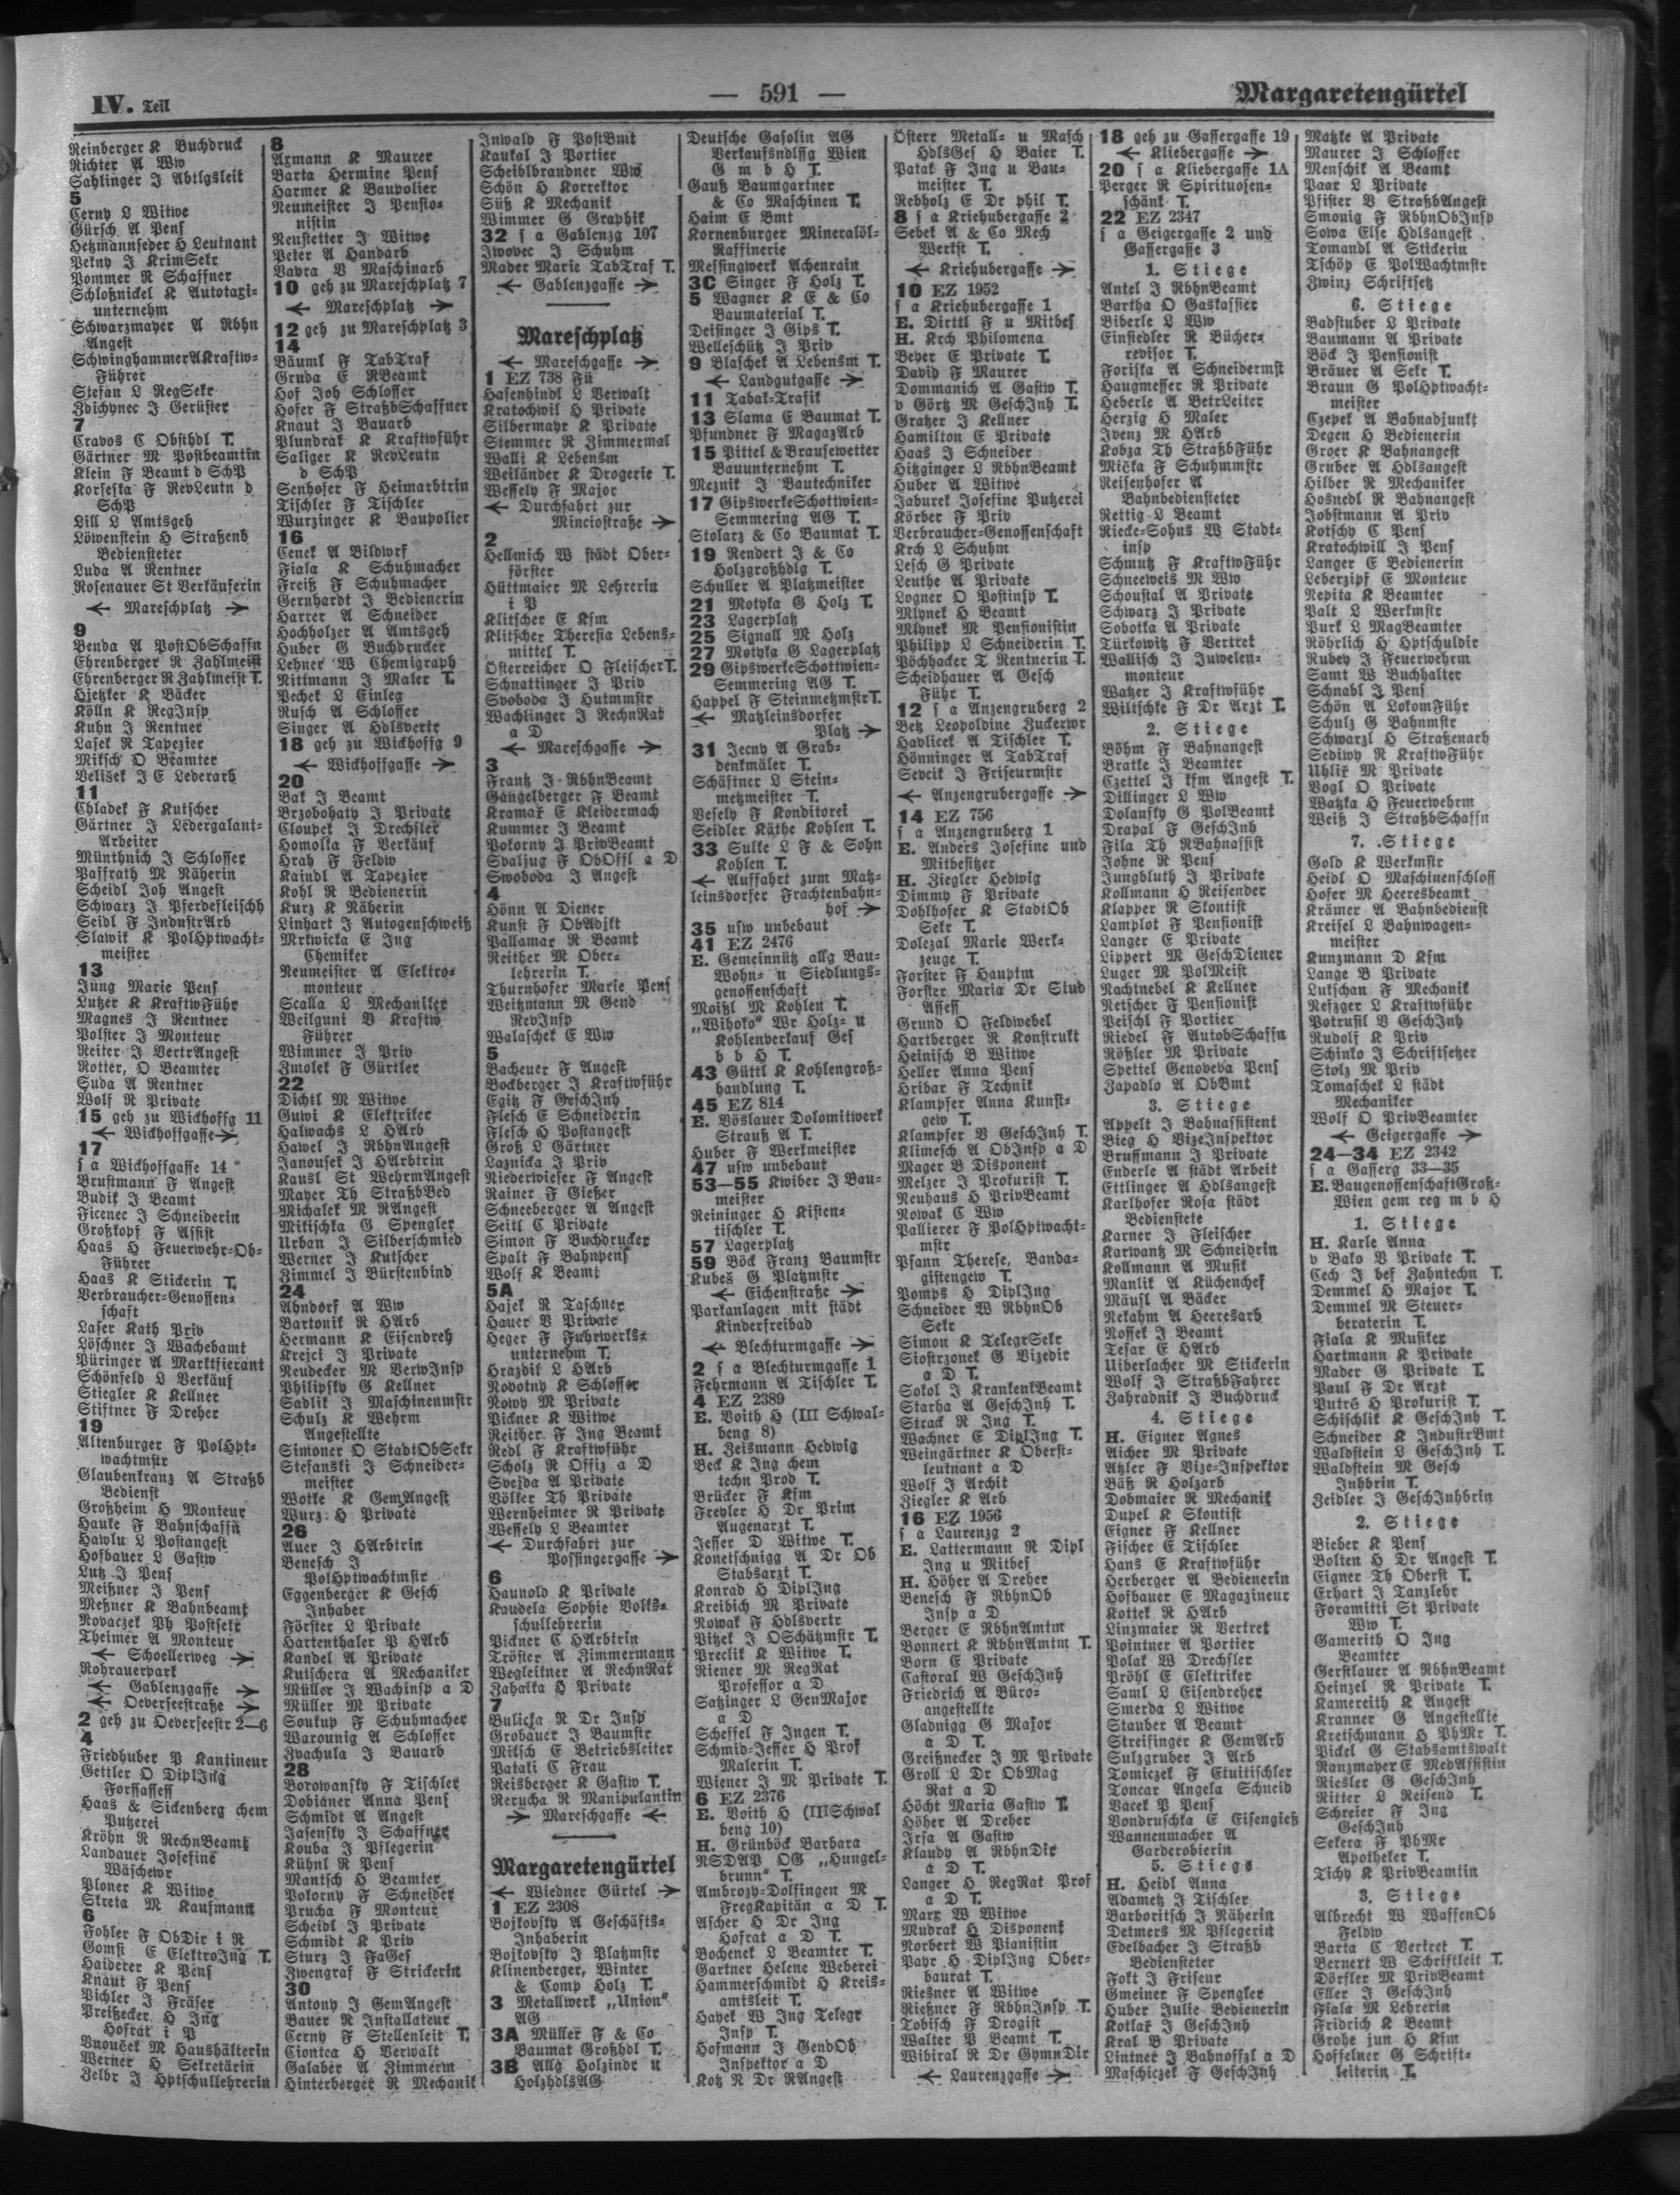 IV. Teil
— 591 —
Margaretengürtel
Reinberger K Buchdruck
Richter A Ww
Sahlinger J Abtlgsleit
5
Cerny L Witwe
Gürsch A Pens
Hetzmannseder H Leutnant
Pekny J KrimSekr
Pommer R Schaffner
Schloßnickel K Autotaxi-
unternehm
Schwarzmayer A Rbhn
Angest
SchwinghammerAKraftw-
Führer
Stefan L RegSekr
Zdichynec J Gerüster
7
Cravos C Obsthdl T.
Gärtner M Postbeamtin
Klein F Beamt d SchP
Korseska F RevLeutn d
SchP
Lill L Amtsgeh
Löwenstein H Straßenb
Bediensteter
Luda A Rentner
Rosenauer St Verkäuferin
← Mareschplatz →
9
Benda A PostObSchaffn
Ehrenberger R Zahlmeist
Ehrenberger R Zahlmeist T.
Hietzker K Bäcker
Kölln K RegInsp
Kuhn J Rentner
Lasek R Tapezier
Miksch O Beamter
Velisek J E Lederarb
11
Chladek F Kutscher
Gärtner J Ledergalant-
Arbeiter
Münthnich J Schlosser
Paffrath M Näherin
Scheidl Joh Angest
Schwarz J Pferdefleischh
Seidl F IndustrArb
Slawik K PolHptwacht-
meister
13
Jung Marie Pens
Lutzer K KraftwFühr
Magnes J Rentner
Polster J Monteur
Reiter J VertrAngest
Rotter, O Beamter
Suda A Rentner
Wolf R Private
15 geh zu Wickhoffg 11
← Wickhoffgasse →
17
s a Wickhoffgasse 14
Brustmann F Angest
Budik J Beamt
Ficenec J Schneiderin
Großkopf F Assist
Haas H Feuerwehr-Ob-
Führer
Haas K Stickerin T.
Verbraucher-Genossen-
schaft
Laser Kath Priv
Löschner J Wachebamt
Püringer A Marktfierant
Schönfeld L Verkäuf
Stiegler K Kellner
Stiftner F Dreher
19
Altenburger F PolHpt-
wachtmstr
Glaubenkranz A Straßb
Bedienst
Großheim H Monteur
Hauke F Bahnschaffn
Hawlu L Postangest
Hofbauer L Gastw
Lutz J Pens
Meißner J Pens
Meßner K Bahnbeamt
Novaczek Ph Postsekr
Theimer A Monteur
← Schoellerweg →
Rohrauerpark
← Gablenzgasse →
← Oeverseestraße →
2 geh zu Oeverseestr 2—6
4
Friedhuber P Kantineur
Gettler O DiplIng
Forstassess
Haas & Sickenberg chem
Putzerei
Kröhn R RechnBeamt
Landauer Josefine
Wäschewr
Ploner K Witwe
Streta M Kaufmann
6
Fohler F ObDir i R
Gomsi E ElektroIng T.
Haiderer K Pens
Knaut F Pens
Pichler J Fräser
Preißecker H Ing
Hofrat i P
Vnouček M Haushälterin
Werner H Sekretärin
Zelbr J Hptschullehrerin
8
Axmann K Maurer
Barta Hermine Pens
Harmer K Baupolier
Neumeister J Pensio-
nistin
Neustetter J Witwe
Peter A Handarb
Vavra V Maschinarb
10 geh zu Mareschplatz 7
← Mareschplatz →
12 geh zu Mareschplatz 3
14
Bäuml F TabTraf
Gruda E RBeamt
Hof Joh Schlosser
Hofer F StraßbSchaffner
Knaut J Bauarb
Plundrak K Kraftwführ
Saliger K RevLeutn
d SchP
Senhofer F Heimarbtrin
Tischler F Tischler
Wurzinger K Baupolier
16
Cenek A Bildwrf
Fiala K Schuhmacher
Freiß F Schuhmacher
Gernhardt J Bedienerin
Harrer A Schneider
Hochholzer A Amtsgeh
Huber G Buchdrucker
Lehner W Chemigraph
Nittmann J Maler T.
Pechek L Einleg
Rusch A Schlosser
Singer A Hdlsvertr
18 geh zu Wickhoffg 9
← Wickhoffgasse →
20
Bak J Beamt
Brzobohaty J Private
Cloupek J Drechsler
Homolka F Verkäuf
Hrah F Feldw
Kaindl A Tapezier
Kohl R Bedienerin
Kurz K Näherin
Linhart J Autogenschweiß
Mrkwicka E Ing
Chemiker
Neumeister A Elektro-
monteur
Scalla L Mechaniker
Weilguni V Kraftw
Führer
Wimmer J Priv
Zmolek F Gürtler
22
Dichtl M Witwe
Guwi K Elektriker
Halwachs L HArb
Hawel J RbhnAngest
Janousek J HArbtrin
Kausl St WehrmAngest
Mayer Th StraßbBed
Michalek M RAngest
Mikischka G Spengler
Urban J Silberschmied
Werner J Kutscher
Zimmel J Bürstenbind
24
Ahndorf A Ww
Bartonik R HArb
Hermann K Eisendreh
Krejci J Private
Neudecker M VerwInsp
Philipsky G Kellner
Sadlik J Maschinenmstr
Schulz K Wehrm
Angestellte
Simoner O StadtObSekr
Stefanski J Schneider-
meister
Wotke K GemAngest
Wurz H Private
26
Auer J HArbtrin
Benesch J
PolHptwachtmstr
Eggenberger K Gesch
Inhaber
Förster L Private
Hartenthaler P HArb
Kandel A Private
Kutschera A Mechaniker
Müller J Wachinsp a D
Müller M Private
Soukup F Schuhmacher
Warounig A Schlosser
Zvachula J Bauarb
28
Borowansky F Tischler
Dobianer Anna Pens
Schmidt A Angest
Jasensky J Schaffner
Kouba J Pflegerin
Kühnl R Pens
Mantsch H Beamter
Pokorny F Schneider
Prucha F Monteur
Scheidl J Private
Schmidt K Priv
Sturz J FaGes
Zwengraf F Strickerin
30
Antony J GemAngest
Bauer R Installateur
Cerny F Stellenleit T.
Cionica H Verwalt
Galaber A Zimmerm
Hinterberger R Mechanik
Inwald F PostBmt
Kaukal J Portier
Scheiblbrandner Ww
Schön H Korrektor
Süß K Mechanik
Wimmer G Graphik
32 s a Gablenzg 107
Iwovec J Schuhm
Mader Marie TabTraf T.
← Gablenzgasse →
Mareschplatz
← Mareschgasse →
1 EZ 738 Fü
Hasenhindl L Verwalt
Kratochwil H Private
Silbermayr K Private
Stemmer R Zimmermal
Walli K Lebensm
Weiländer K Drogerie T.
Wessely F Major
← Durchfahrt zur
Minciostraße →
2
Hellmich W städt Ober-
förster
Hüttmaier M Lehrerin
i P
Klitscher E Kfm
Klitscher Theresia Lebens-
mittel T.
Österreicher O FleischerT.
Schnattinger J Priv
Svoboda J Hutmmstr
Wachlinger J RechnRat
a D
← Mareschgasse →
3
Frantz J RbhnBeamt
Gangelberger F Beamt
Kramař E Kleidermach
Kummer J Beamt
Pokorny J PrivBeamt
Svaljug F ObOffl a D
Swoboda J Angest
4
Hönn A Diener
Kunst F ObAdjkt
Pallamar R Beamt
Reither M Ober-
lehrerin T.
Thurnhofer Marie Pens
Weitzmann M Gend
RevInsp
Walaschek E Ww
5
Bacheuer F Angest
Bockberger J Kraftwführ
Egitz F GeschInh
Flesch E Schneiderin
Flesch H Postangest
Groß L Gärtner
Laznicka J Priv
Niederwieser F Angest
Rainer F Gießer
Schneeberger A Angest
Seitl C Private
Simon F Buchdrucker
Spalt F Bahnpens
Wolf K Beamt
5A
Hajek R Taschner
Hauer V Private
Heger F Fuhrwerks-
unternehm T.
Hrazdil L HArb
Novotny K Schlosser
Nowy M Private
Pickner K Witwe
Reither F Ing Beamt
Redl F Kraftwführ
Scholz R Offiz a D
Svejda A Private
Völker Th Private
Wernheimer R Private
Wessely L Beamter
← Durchfahrt zur
Possingergasse →
6
Haunold K Private
Kaudela Sophie Volks-
schullehrerin
Pickner C HArbtrin
Tröster A Zimmermann
Wegleitner A RechnRat
Zahalka H Private
7
Bulicka R Dr Insp
Grobauer J Baumstr
Miksch E Betriebsleiter
Patali C Frau
Reisberger K Gastw T.
Rerucha R Manipulantin
→ Mareschgasse ←
Margaretengürtel
← Wiedner Gürtel →
1 EZ 2308
Bojkovsky A Geschäfts-
Inhaberin
Bojkovsky J Platzmstr
Klinenberger, Winter
& Comp Holz T.
3 Metallwerk „Union“
AG
3A Müller F & Co
Baumat Großhdl T.
3B Allg Holzindr u
HolzhdlsAG
Deutsche Gasolin AG
Verkaufsndlssg Wien
G m b H T.
Gauß Baumgartner
& Co Maschinen T.
Haim E Bmt
Kornenburger Mineralöl-
Raffinerie
Messingwerk Achenrain
3C Singer F Holz T.
5 Wagner K E & Co
Baumaterial T.
Deisinger J Gips T.
Welleschütz J Priv
9 Blaschek A Lebensm T.
← Landgutgasse →
11 Tabak-Trafik
13 Slama E Baumat T.
Pfundner F MagazArb
15 Pittel & Brausewetter
Bauunternehm T.
Meznik J Bautechniker
17 GipswerkeSchottwien-
Semmering AG T.
Stolarz & Co Baumat T.
19 Rendert J & Co
Holzgroßhdlg T.
Schuller A Platzmeister
21 Motyka G Holz T.
23 Lagerplatz
25 Signall M Holz
27 Motyka G Lagerplatz
29 GipswerkeSchottwien-
Semmering AG T.
Happel F SteinmetzmstrT.
← Matzleinsdorfer
Platz →
31 Jecny A Grab-
denkmäler T.
Schäftner L Stein-
metzmeister T.
Vesely F Konditorei
Seidler Käthe Kohlen T.
33 Sulke L F & Sohn
Kohlen T.
← Auffahrt zum Matz-
leinsdorfer Frachtenbahn-
hof →
35 usw unbebaut
41 EZ 2476
E. Gemeinnütz allg Bau-
Wohn- u Siedlungs-
genossenschaft
Moißl M Kohlen T.
„Wihoko“ Wr Holz- u
Kohlenverkauf Ges
b b H T.
43 Güttl K Kohlengroß-
handlung T.
45 EZ 814
E. Vöslauer Dolomitwerk
Strauß A T.
Huber F Werkmeister
47 usw unbebaut
53—55 Kwiber J Bau-
meister
Reininger H Kisten-
tischler T.
57 Lagerplatz
59 Böck Franz Baumstr
Kubeš G Platzmstr
← Eichenstraße →
Parkanlagen mit städt
Kinderfreibad
← Blechturmgasse →
2 s a Blechturmgasse 1
Fehrmann A Tischler T.
4 EZ 2389
E. Voith H (III Schwal-
beng 8)
H. Zeismann Hedwig
Beck K Ing chem
techn Prod T.
Brücker F Kfm
Freyler H Dr Prim
Augenarzt T.
Jesser D Witwe T.
Konetschnigg A Dr Ob
Stabsarzt T.
Konrad H DiplIng
Kreibich M Private
Nowak F Hdlsvertr
Pitzek J OSchätzmstr T.
Preclik K Witwe T.
Riener M RegRat
Professor a D
Satzinger L GenMajor
a D
Scheffel F Ingen T.
Schmid-Jesser H Prof
Malerin T.
Wiener J M Private T.
6 EZ 2376
E. Voith H (IIISchwal
beng 10)
H. Grünböck Barbara
NSDAP OG „Hungel-
brunn“ T.
Ambrozy-Dolfingen M
FregKapitän a D T.
Ascher H Dr Ing
Hofrat a D T.
Bochenek L Beamter T.
Gartner Helene Weberei
Hammerschmidt H Kreis-
amtsleit T.
Hayek W Ing Telegr
Insp T.
Hofmann J GendOb
Inspektor a D
Kotz N Dr RAngest
Österr Metall- u Masch
HdlsGes H Baier T.
Patak F Ing u Bau-
meister T.
Rebholz E Dr phil T.
8 s a Kriehubergasse 2
Sebek A & Co Mech
Werkst T.
← Kriehubergasse →
10 EZ 1952
s a Kriehubergasse 1
E. Dirttl F u Mitbes
H. Krch Philomena
Beyer E Private T.
David F Maurer
Dommanich A Gastw T.
v Görtz M GeschInh T.
Gratzer J Kellner
Hamilton E Private
Haas J Schneider
Hitzginger L RbhnBeamt
Huber A Witwe
Jaburek Josefine Putzerei
Körber F Priv
Verbraucher-Genossenschaft
Krch L Schuhm
Lesch G Private
Leuthe A Private
Logner O Postinsp T.
Mlynek H Beamt
Mlynek M Pensionistin
Philipp L Schneiderin T.
Pöchhacker T Rentnerin T.
Scheidhauer A Gesch
Führ T.
12 s a Anzengruberg 2
Betz Leopoldine Zuckerwr
Havlicek A Tischler T.
Hönninger A TabTraf
Sevcik J Friseurmstr
← Anzengrubergasse →
14 EZ 756
s a Anzengruberg 1
E. Anders Josefine und
Mitbesitzer
H. Ziegler Hedwig
Dimmy F Private
Dohlhofer K StadtOb
Sekr T.
Dolezal Marie Werk-
zeuge T.
Forster F Hauptm
Forster Maria Dr Stud
Assess
Grund O Feldwebel
Hartberger R Konstrukt
Heinisch B Witwe
Heller Anna Pens
Hribar F Technik
Klampfer Anna Kunst-
gew T.
Klampfer V GeschInh T.
Klimesch A ObInsp a D
Mager B Disponent
Melzer J Prokurist T.
Neuhaus H PrivBeamt
Nowak C Ww
Pallierer F PolHptwacht-
mstr
Pfann Therese, Banda-
gistengew T.
Pomps H DiplIng
Schneider W RbhnOb
Sekr
Simon K TelegrSekr
Siostrzonek G Vizedir
a D T.
Sokol J KrankenkBeamt
Starha A GeschInh T.
Strack R Ing T.
Wachner E DiplIng T.
Weingärtner K Oberst-
leutnant a D
Wolf J Archit
Ziegler K Arb
16 EZ 1956
s a Laurenzg 2
E. Lattermann R Dipl
Ing u Mitbes
H. Höher A Dreher
Benesch F RbhnOb
Insp a D
Berger E RbhnAmtm
Bonnert K RbhnAmtm T.
Born E Private
Castoral W GeschInh
Friedrich A Büro-
angestellte
Gladnigg G Major
a D T.
Greißnecker J M Private
Groll L Dr ObMag
Rat a D
Höcht Maria Gastw T.
Höher A Dreher
Irsa A Gastw
Klaudy A RbhnDir
a D T.
Langer H RegRat Prof
a D T.
Marx W Witwe
Mudrak H Disponent
Norbert W Pianistin
Payr H DiplIng Ober-
baurat T.
Riesner A Witwe
Rießner F RbhnInsp T.
Tobisch F Drogist
Walter P Beamt T.
Wibiral R Dr GymnDir
← Laurenzgasse →
18 geh zu Gassergasse 19
← Kliebergasse →
20 s a Kliebergasse 1A
Perger R Spirituosen-
schänk T.
22 EZ 2347
s a Geigergasse 2 und
Gassergasse 3
1. Stiege
Antel J RbhnBeamt
Bartha O Gaskassier
Biberle L Ww
Einsiedler R Bücher-
revisor T.
Foriska A Schneidermst
Haugmesser R Private
Heberle A BetrLeiter
Herzig H Maler
Ivenz M HArb
Kobza Th StraßbFühr
Mička F Schuhmmstr
Reisenhofer A
Bahnbediensteter
Rettig L Beamt
Riecke-Sohns W Stadt-
insp
Schmutz F KraftwFühr
Schneeweis M Ww
Schoustal A Private
Schwarz J Private
Sobotka A Private
Türkowitz F Vertret
Wallisch J Juwelen-
monteur
Watzer J Kraftwführ
Wiltschke F Dr Arzt T.
2. Stiege
Böhm F Bahnangest
Bratke J Beamter
Czettel J kfm Angest T.
Dillinger L Ww
Dolausky G PolBeamt
Drapal F GeschInh
Fila Th RBahnassist
Johne R Pens
Jungbluth J Private
Kollmann H Reisender
Klapper R Skontist
Lamplot F Pensionist
Langer E Private
Lippert M GeschDiener
Luger M PolMeist
Nachtnebel K Kellner
Netscher F Pensionist
Peischl F Portier
Riedel F AutobSchaffn
Rößler M Private
Spettel Genoveva Pens
Zapadlo A ObBmt
3. Stiege
Appelt J Bahnassistent
Bieg H VizeInspektor
Bruffmann J Private
Enderle A städt Arbeit
Ettlinger A Hdlsangest
Karlhofer Rosa städt
Bedienstete
Karner J Fleischer
Karwantz M Schneidrin
Kollmann A Musik
Manlik A Küchenchef
Mäusl A Bäcker
Nekahm A Heeresarb
Nossek J Beamt
Tesar E HArb
Uiberlacher M Stickerin
Wolf J StraßbFahrer
Zahradnik J Buchdruck
4. Stiege
H. Eigner Agnes
Aicher M Private
Atzler F Vize-Inspektor
Bäß R Holzarb
Dobmaier R Mechanik
Dupel K Skontist
Eigner F Kellner
Fischer E Tischler
Hans E Kraftwführ
Herberger A Bedienerin
Hofbauer E Magazineur
Kottek R HArb
Linzmaier R Vertret
Pointner A Portier
Polak W Drechsler
Pröhl E Elektriker
Saml L Eisendreher
Smerda L Witwe
Stauber A Beamt
Streifinger K GemArb
Sulzgruber J Arb
Tomiczek F Etuitischler
Toncar Angela Schneid
Vacek P Pens
Vondruschka E Eisengieß
Wannenmacher A
Garderobierin
5. Stiege
H. Heidl Anna
Adametz J Tischler
Barboritsch J Näherin
Detmers M Pflegerin
Edelbacher J Straßb
Bediensteter
Fokt J Friseur
Gmeiner F Spengler
Huber Julie Bedienerin
Kotlař J GeschInh
Kral B Private
Lintner J Bahnoffzl a D
Maschiczek F GeschInh
Matzke A Private
Maurer J Schlosser
Menschik A Beamt
Paar L Private
Pfister V StraßbAngest
Smonig F RbhnObInsp
Sowa Else Hdlsangest
Tomandl A Stickerin
Tschöp E PolWachtmstr
Zwinz Schriftsetz
6. Stiege
Badstuber L Private
Baumann A Private
Böck J Pensionist
Bräuer A Sekr T.
Braun G PolHptwacht-
meister
Czepek A Bahnadjunkt
Degen H Bedienerin
Groer K Bahnangest
Gruber A Hdlsangest
Hilber R Mechaniker
Hosnedl R Bahnangest
Jobstmann A Priv
Kotschy C Pens
Kratochwill J Pens
Langer E Bedienerin
Leberzipf E Monteur
Nepita K Beamter
Palt L Werkmstr
Purk L MagBeamter
Röhrlich H Hptschuldir
Rubey J Feuerwehrm
Samt W Buchhalter
Schnabl J Pens
Schön A LokomFühr
Schulz G Bahnmstr
Schwarzl H Straßenarb
Sediwy R KraftwFühr
Uhliř M Private
Vogl O Private
Watzka H Feuerwehrm
Weiß J StraßbSchaffn
7. Stiege
Gold K Werkmstr
Heidl O Maschinenschloss
Hofer M Heeresbeamt
Krämer A Bahnbedienst
Kreisel L Bahnwagen-
meister
Kunzmann D Kfm
Lange B Private
Lutschan F Mechanik
Nefzger L Kraftwführ
Potrusil V GeschInh
Rudolf K Priv
Schinko J Schriftsetzer
Stolz M Priv
Tomaschek L städt
Mechaniker
Wolf O PrivBeamter
← Geigergasse →
24—34 EZ 2342
s a Gasserg 33—35
E. BaugenossenschaftGroß-
Wien gem reg m b H
1. Stiege
H. Karle Anna
v Bako V Private T.
Cech J bef Zahntechn T.
Demmel H Major T.
Demmel M Steuer-
beraterin T.
Fiala K Musiker
Hartmann K Private
Mader G Private T.
Paul F Dr Arzt
Putré H Prokurist T.
Schischlik K GeschInh T.
Schneider K IndustrBmt
Waldstein L GeschInh T.
Waldstein M Gesch
Inhbrin T.
Zeidler J GeschInhbrin
2. Stiege
Bieber K Pens
Bolten H Dr Angest T.
Eigner Th Oberst T.
Erhart J Tanzlehr
Foramitti St Private
Ww T.
Gamerith O Ing
Beamter
Gerstlauer A RbhnBeamt
Heinzel R Private T.
Kamereith K Angest
Kranner G Angestellte
Kretschmann H PhMr T.
Pickel G Stabsamtswalt
Ranzmayer E MedAssistin
Riesler G GeschInh
Ritter L Reisend T.
Schreier F Ing
GeschInh
Sekera F PhMr
Apotheker T.
Tichy K PrivBeamtin
3. Stiege
Albrecht W WaffenOb
Feldw
Barta C Vertret T.
Bernert W Schriftleit T.
Dörfler M PrivBeamt
Eller J GeschInh
Fiala M Lehrerin
Fridrich K Beamt
Grohe jun H Kfm
Hoffelner G Schrift-
leiterin T.